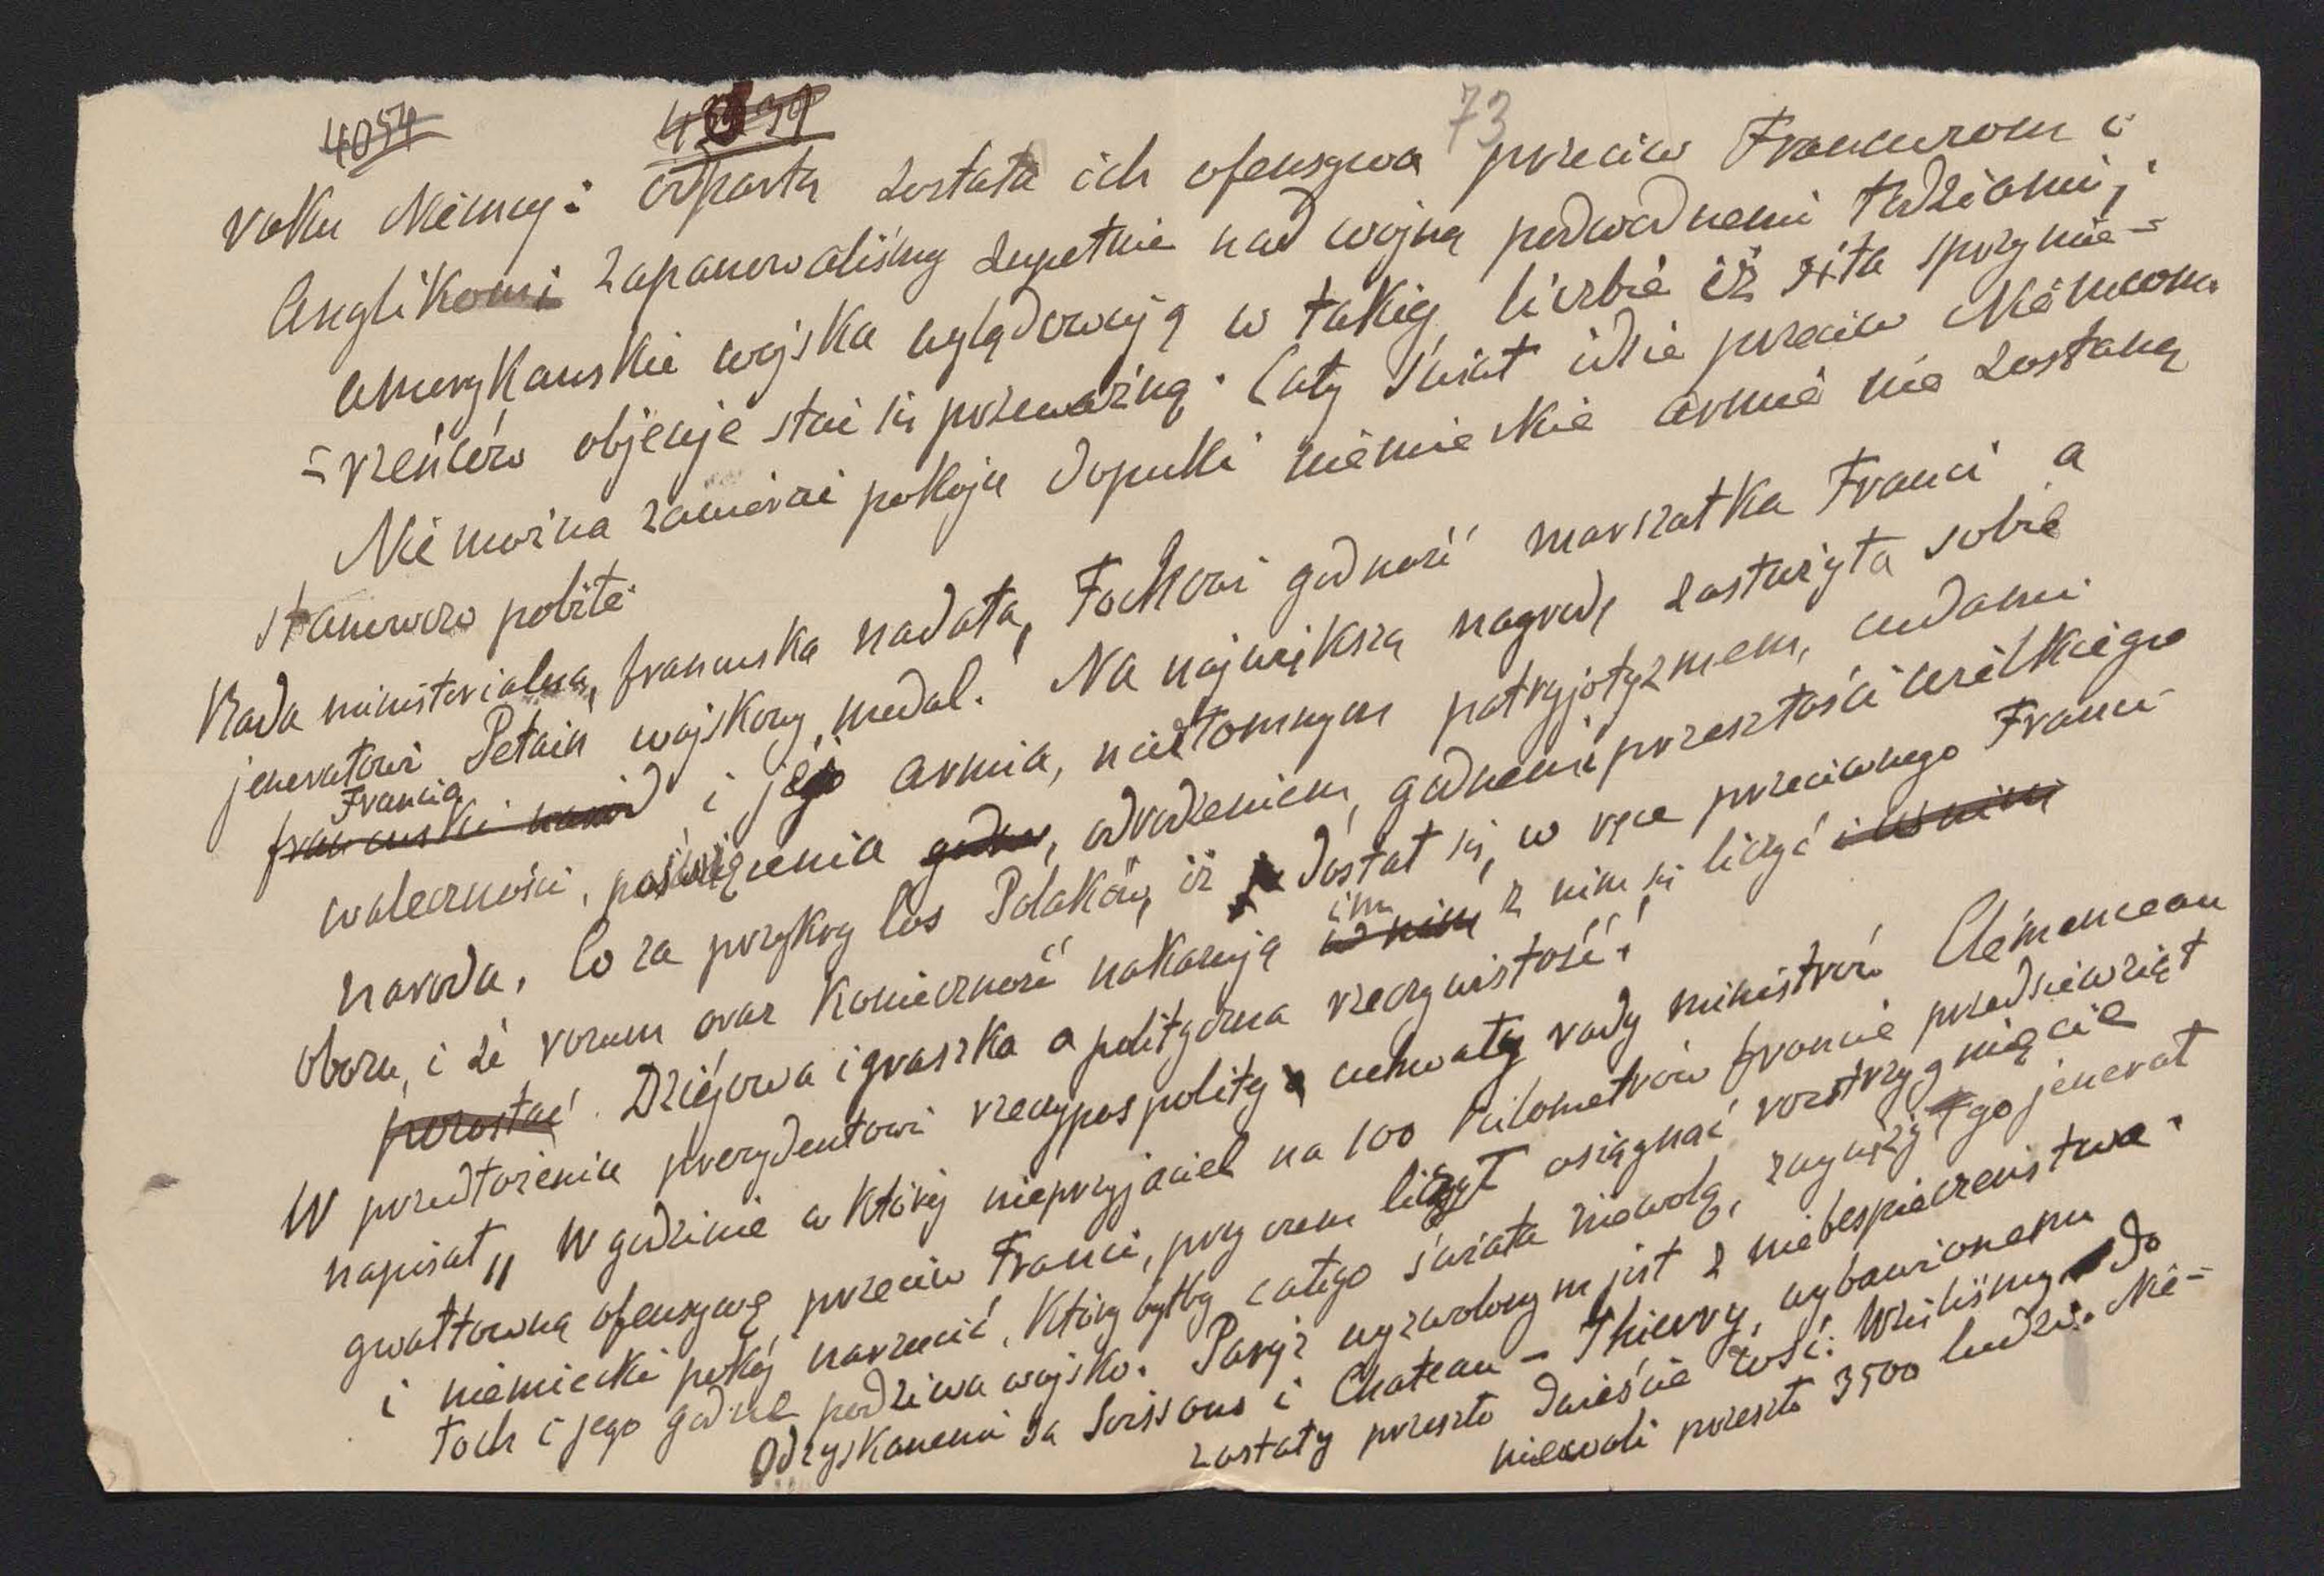 4054 73
roku Niemcy: odpartą została ich ofensywa przeciw Francuzom i
Anglikom i zapanowaliśmy zupełnie nad wojną podwodnemi łodziami,
amerykanskie wojska wylądowują w takiej liczbie iż siła sprzymie=
=rzeńców objecuje stać się przeważną. Cały świat idzie przeciw Niemcom.
Nie można zawierać pokoju dopukki niemieckie armie nie zostaną
stanowczo pobite.
Rada ministerialna, francuska nadała, Fochowi godność marszałka Franci a
jenerałowi Petain wojskowy medal. Na największą nagrodę zasłużyła sobie
Francia
francuski naród i jéj armia, niezłomnym patryjotyzmem, cudami
waleczności, poświęcenia godne, odrodzeniem, godnemi przeszłości wielkiego
narodu. Co za przykry los Polaków, iż dostał się, w ręce przeciwnego Franci
im
obozu, i że rozum oraz konieczność nakazują w nim z nim się liczyć i w nim
pozostać. Dziejowa igraszka a polityczna rzeczywistość!
W przedłożeniu prezydentowi rzeczypospolitej uchwały rady ministrów Clémenceau
napisał „ W godzinie w której nieprzyjaciel na 100 kilometrów froncie przedsiewziął
gwałtowną ofensywę, przeciw Franci, przy czem liczył osiągnać rozstrzygnięcie
i niemiecki pokój narzucić, który byłby całego świata niewolą, zwyciężył go jenerał
Foch i jego godne podziwu wojsko. Paryż wyzwolonym jest z niebespieczenstwa.
Odzyskanemi są Soissons i Chateau - Thierry, wybawionemu
zostały przeszło dwieście wsi. Wzieliśmy do
niewoli przeszło 3500 ludzi. Nie=